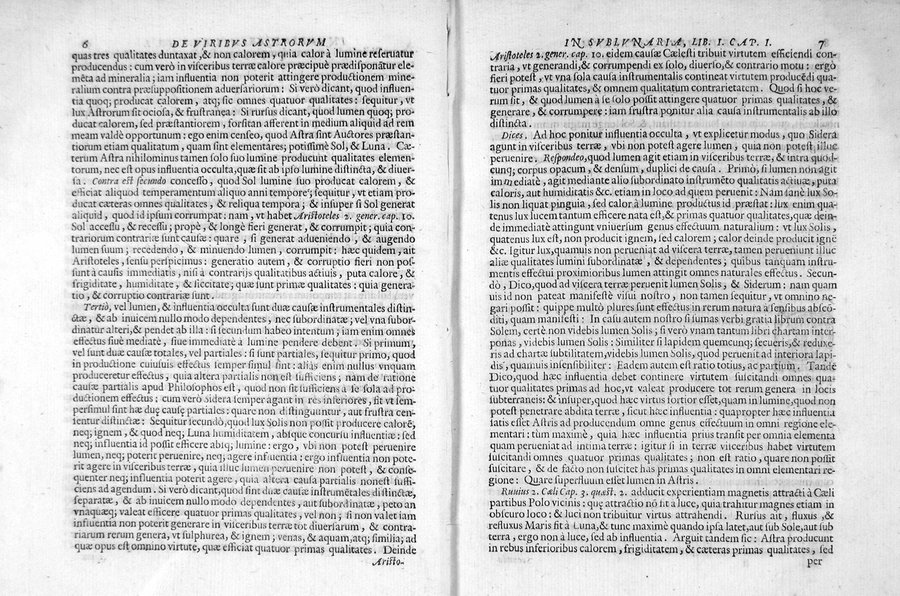 6 DE VIRIBVS ASTRORVM
quas tres qualitates duntaxat, & non calorem, quia calor à lumine reseruatur
producendus: cum verò in visceribus terræ calore præcipuè prædisponãtur ele-
mẽta ad mineralia; iam influentia non poterit attingere productionem mine-
ralium contra præsuppositionem aduersariorum: Si verò dicant, quod influen-
tia quoq; producat calorem, atq; sic omnes quatuor qualitates: sequitur, vt
lux Astrorum sit ociosa, & frustranea: Si rursus dicant, quod lumen quoq; pro-
ducat calorem, sed præstantiorem, forsitan afferent in medium aliquid ad rem
meam valdè opportunum: ergo enim censeo, quod Astra sint Auctores præstan-
tiorum etiam qualitatum, quam sint elementares; potissimè Sol, & Luna. Cæ-
terum Astra nihilominus tamen solo suo lumine producunt qualitates elemen-
torum, nec est opus influentia occulta, quæ sit ab ipso lumine distincta, & diuer-
sa. Contra est secundo concesso, quod Sol lumine suo producat calorem, &
efficiat aliquod temperamentum aliquo anni tempore; sequitur, vt etiam pro-
ducat cæteras omnes qualitates, & reliqua tempora; & insuper si Sol generat
aliquid, quod id ipsum corrumpat: nam, vt habet Aristoteles 2. gener. cap. 10.
Sol accessu, & recessu; propè, & longè fieri generat, & corrumpit; quia con-
trariorum contrariæ sunt causæ: quare, si generat adueniendo, & augendo
lumen suum; recedendo, & minuendo lumen, corrumpit: hæc quidem, ait
Aristoteles, sensu perspicimus: generatio autem, & corruptio fieri non pos-
sunt à causis immediatis, nisi à contrarijs qualitatibus actiuis, puta calore, &
frigiditate, humiditate, & siccitate; quæ sunt primæ qualitates: quia genera-
tio, & corruptio contrariæ sunt.
Tertiò, vel lumen, & influentia occulta sunt duæ causæ instrumentales distin-
ctæ, & ab inuicem nullo modo dependentes, nec subordinatæ; vel vna subor-
dinatur alteri, & pendet ab illa: si secundum habeo intentum; iam enim omnes
effectus siuè mediatè, siue immediatè à lumine pendere debent. Si primum,
vel sunt duæ causæ totales, vel partiales: si sunt partiales, sequitur primo, quod
in productione cuiusuis effectus semper simul sint: aliàs enim nullus vnquam
produceretur effectus, quia altera partialis non est sufficiens, nam de ratione
causæ partialis apud Philosophos est, quod non sit sufficiens à se sola ad pro-
ductionem effectus: cum verò sidera semper agant in res inferiores, fit vt sem-
per simul sint hæ duę causę partiales: quare non distinguuntur, aut frustra cen-
sientur distinctæ: Sequitur secundò, quod lux Solis non possit producere calorẽ,
neq; ignem, & quod neq; Luna humiditatem, absque concursu influentiæ: sed
neq; influentia id possit efficere abiq; lumine; ergo, vbi non potest peruenire
lumen, neq; poterit peruenire, neq; agere influentia: ergo influentia non pote-
rit agere in visceribus terræ, quia illuc lumen peruenire non potest, & conse-
quenter neq; influentia poterit agere, quia altera causa partialis non est suffi-
ciens ad agendum. Si verò dicant, quod sint duæ causæ instrumẽtales distinctæ,
separatæ, & ab inuicem nullo modo dependentes, aut subordinatæ, peto an
vnaquæq; valeat efficere quatuor primas qualitates, vel non; si non valet iam
influentia non poterit generare in visceribus terræ tot diuersarum, & contra-
riarum rerum genera, vt sulphurea, & ignem; venas, & aquam, atq; similia; ad
quæ opus est omnino virtute, quæ efficiat quatuor primas qualitates. Deinde
Aristo-
IN SVBLVNARIA, LIB. I. CAP. I. 7
Aristoteles 2. gener. cap. 10. eidem causæ Cælesti tribuit virtutem efficiendi con-
traria, vt generandi, & corrumpendi ex solo, diuerso, & contrario motu: ergo
fieri potest, vt vna sola causa instrumentalis contineat virtutem producẽdi qua-
tuor primas qualitates, & omnem qualitatum contrarietatem. Quod si hoc ve-
rum sit, & quod lumen à se solo possit attingere quatuor primas qualitates, &
generare, & corrumpere; iam frustra ponitur alia causa instrumentalis ab illo
distincta.
Dices. Ad hoc ponitur influentia occulta, vt explicetur modus, quo Sidera
agunt in visceribus terræ, vbi non potest agere lumen, quia non potest, illuc
peruenire. Respondeo, quod lumen agit etiam in visceribus terræ, & intra quod-
cunq; corpus opacum, & densum, duplici de causa. Primò, si lumen non agit
immediatè, agit mediante alio subordinato instrumẽto qualitatis actiuæ, puta
caloris, aut humiditatis &c. etiam in loco ad quem peruenit: Nam sanè lux So-
lis non liquat pinguia, sed calor à lumine productus id præstat: lux enim qua-
tenus lux lucem tantum efficere nata est, & primas quatuor qualitates, quæ dein-
de immediatè attingunt vniuersum genus effectuum naturalium: vt lux Solis,
quatenus lux est, non producit ignem, sed calorem; calor deinde producit ignẽ
&c. Igitur lux, quamuis non perueniat ad viscera terræ, tamen perueniunt illuc
aliæ qualitates lumini subordinatæ, & dependentes; quibus tanquam instru-
mentis effectui proximioribus lumen attingit omnes naturales effectus. Secun-
dò, Dico, quod ad viscera terræ peruenit lumen Solis, & Siderum: nam quam
uis id non pateat manifestè visui nostro, non tamen sequitur, vt omnino ne-
gari possit: quippe multo plures sunt effectus in rerum natura à sensibus abscõ-
diti, quam manifesti: In casu autem nostro si sumas verbi gratia librum contra
Solem, certè non videbis lumen Solis; si verò vnam tantum libri chartam inter-
ponas, videbis lumen Solis: Similiter si lapidem quemcunq; secueris, & reduxe-
ris ad chartæ subtilitatem, videbis lumen Solis, quod peruenit ad interiora lapi-
dis, quamuis insensibiliter: Eadem autem est ratio totius, ac partium. Tande
Dico, quod hæc influentia debet continere virtutem suscitandi omnes qua-
tuor qualitates primas ad hoc, vt valeat producere tot rerum genera in locis
subterraneis: & insuper, quod hæc virtus fortior esset, quam in lumine, quod non
potest penetrare abdita terræ, sicut hæc influentia: quapropter hæc influentia
satis esset Astris ad producendum omne genus effectuum in omni regione ele-
mentari: tum maximè, quia hæc influentia prius transit per omnia elementa
quam perueniat ad intima terræ: igitur si in terræ visceribus habet virtutem
suscitandi omnes quatuor primas qualitates; non est ratio, quare non possit
suscitare, & de facto non suscitet has primas qualitates in omni elementari re-
gione: Quare superfluum esset lumen in Astris.
Ruuius 2. Cæli Cap. 3. quæst. 2. adducit experientiam magnetis attracti à Cæli
partibus Polo vicinis: quę attractio nõ fit à luce, quia trahitur magnes etiam in
obscuro loco: & luci non tribuitur virtus attrahendi. Rursus ait, fluxus, &
refluxus Maris fit à Luna, & tunc maximè quando ipsa latet, aut sub Sole, aut sub
terra, ergo non à luce, sed ab influentia. Arguit tandem sic: Astra producunt
in rebus inferioribus calorem, frigiditatem, & cæteras primas qualitates, sed
per